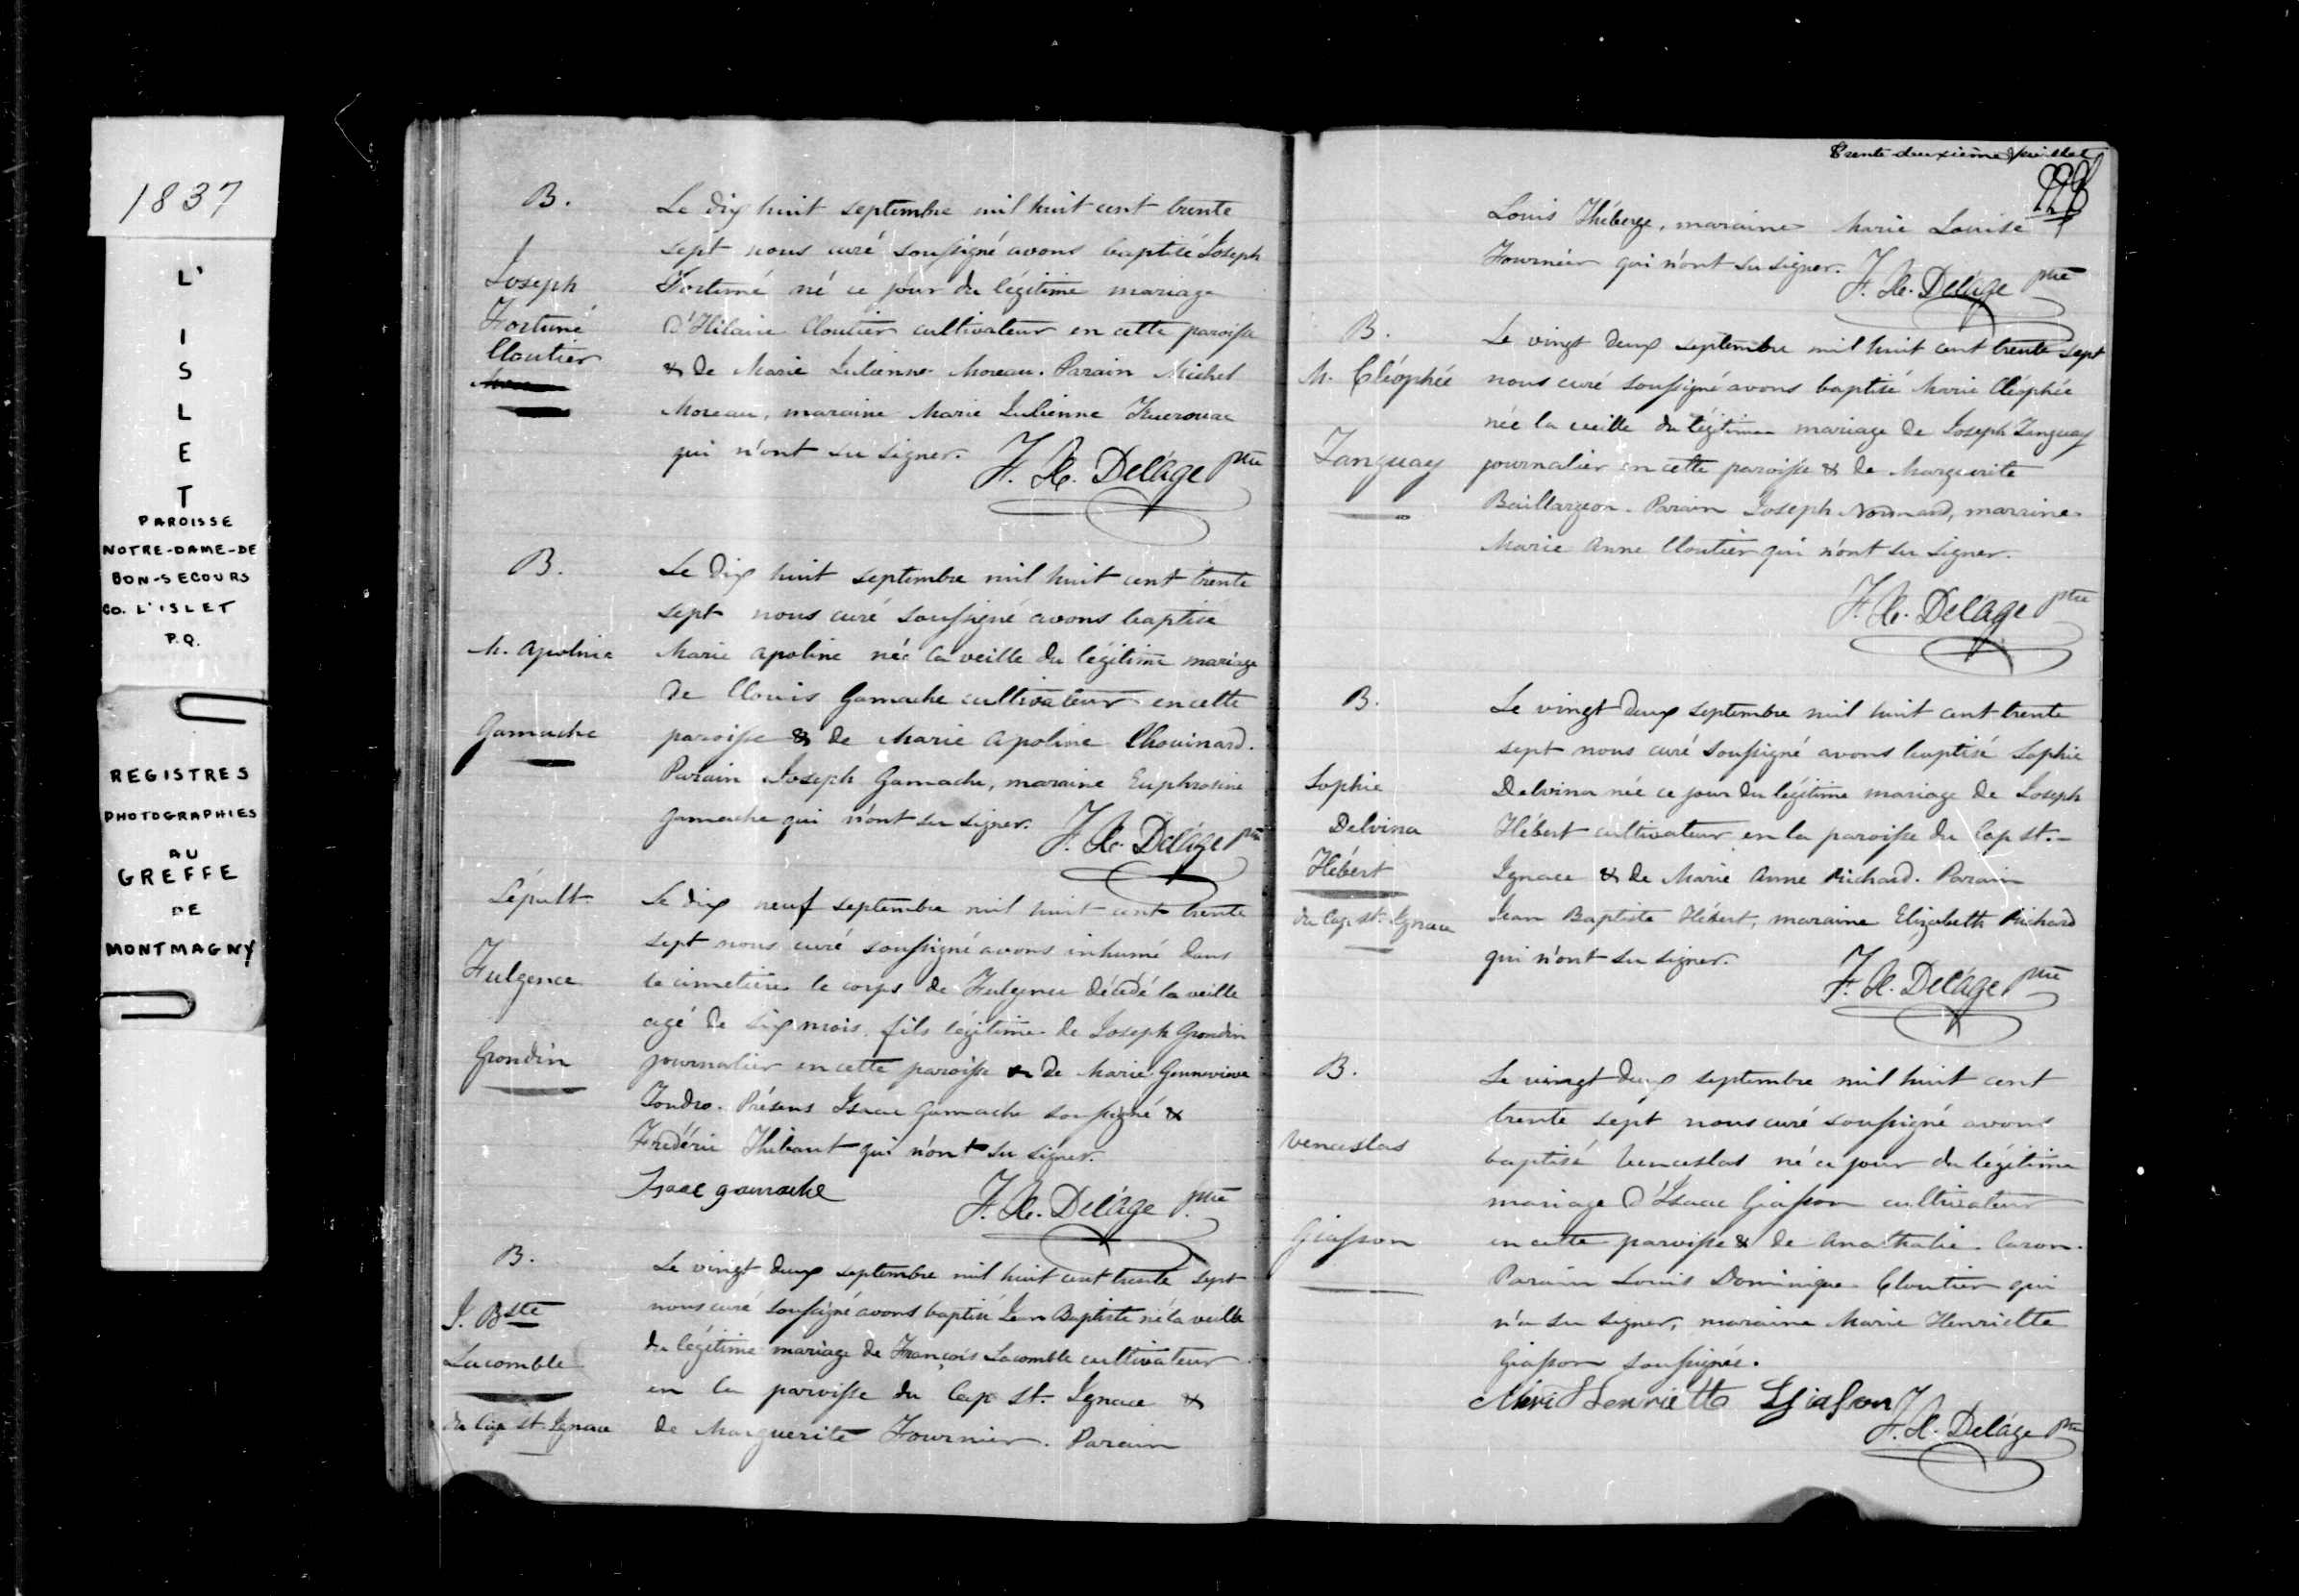 1837
L'
I
S
L
E
T
PAROISSE
NOTRE-DAME-DE
BON-SECOURS
CO. L'ISLET
P.Q.
REGISTRES
PHOTOGRAPHIES
AU
GREFFE
DE
MONTMAGNY
B.
Joseph
Fortuné
Cloutier
Le dix huit septembre mil huit cent trente
sept nous curé soussigné avons baptisé Joseph
Fortuné né ce jour du légitime mariage
d'Hilaire Cloutier cultivateur en cette paroisse
& de Marie Julienne Moreau. Parain Michel
Moreau, maraine Marie Julienne Kuerouac
qui n'ont su signer. F. X. Delâge ptre
B.
M. Apolinie
Gamache
Le dix huit septembre mil huit cent trente
sept nous curé soussigné avons baptisé
Marie Apoline née la veille du légitime mariage
de Clovis Gamache cultivateur en cette
paroisse & de Marie Apoline Chouinard.
Parain Joseph Gamache, maraine Euphrosine
Gamache qui n'ont su signer. F. X. Delâge ptre
Sépult.
Fulgence
Grondin
Le dix neuf septembre mil huit cent trente
sept nous curé soussigné avons inhumé dans
le cimetière le corps de Fulgence décédé la veille
agé de six mois, fils légitime de Joseph Grondin
journalier en cette paroisse & de Marie Gennevieve
Tondro. Présens Isaac Gamache soussigné &
Frédéric Thibaut qui n'ont su signer.
Isaac gamache F. X. Delâge ptre
B.
J. Bste
Lacomble
du Cap St. Ignace
Le vingt deux septembre mil huit cent trente sept
nous curé soussigné avons baptisé Jean Baptiste né la veille
du légitime mariage de François Lacomble cultivateur
en la paroisse du Cap St. Ignace &
de Marguerite Fournier. Parain
trente deuxième feuillet
Louis Théberge, maraine Marie Louise
Fournier qui n'ont su signer. F. X. Delâge ptre
B.
M. Cléophée
Tanguay
Le vingt deux septembre mil huit cent trente sept
nous curé soussigné avons baptisé Marie Cléophée
née la veille du légitime mariage de Joseph Tanguay
journalier en cette paroisse & de Marguerite
Baillargeon. Parain Joseph Normand, marrine
Marie Anne Cloutier qui n'ont su signer.
F. X. Delâge ptre
B.
Sophie
Delvina
Hébert
du Cap St. Ignace
Le vingt deux septembre mil huit cent trente
sept nous curé soussigné avons baptisé Sophie
Delvina née ce jour du légitime mariage de Joseph
Hébert cultivateur en la paroisse du Cap St.-
Ignace & de Marie Anne Richard. Parain
Jean Baptiste Hébert, maraine Elizabeth Richard
qui n'ont su signer.
F. X. Delâge ptre
B.
Venceslas
Giasson
Le vingt deux septembre mil huit cent
trente sept nous curé soussigné avons
baptisé Venceslas né ce jour du légitime
mariage d'Isaac Giasson cultivateur
en cette paroisse & de Anathalie Caron.
Parain Louis Dominique Cloutier qui
n'a su signer, maraine Marie Henriette
Giasson soussignée.
Mari Henriette Giasson
F. X. Delâge ptre